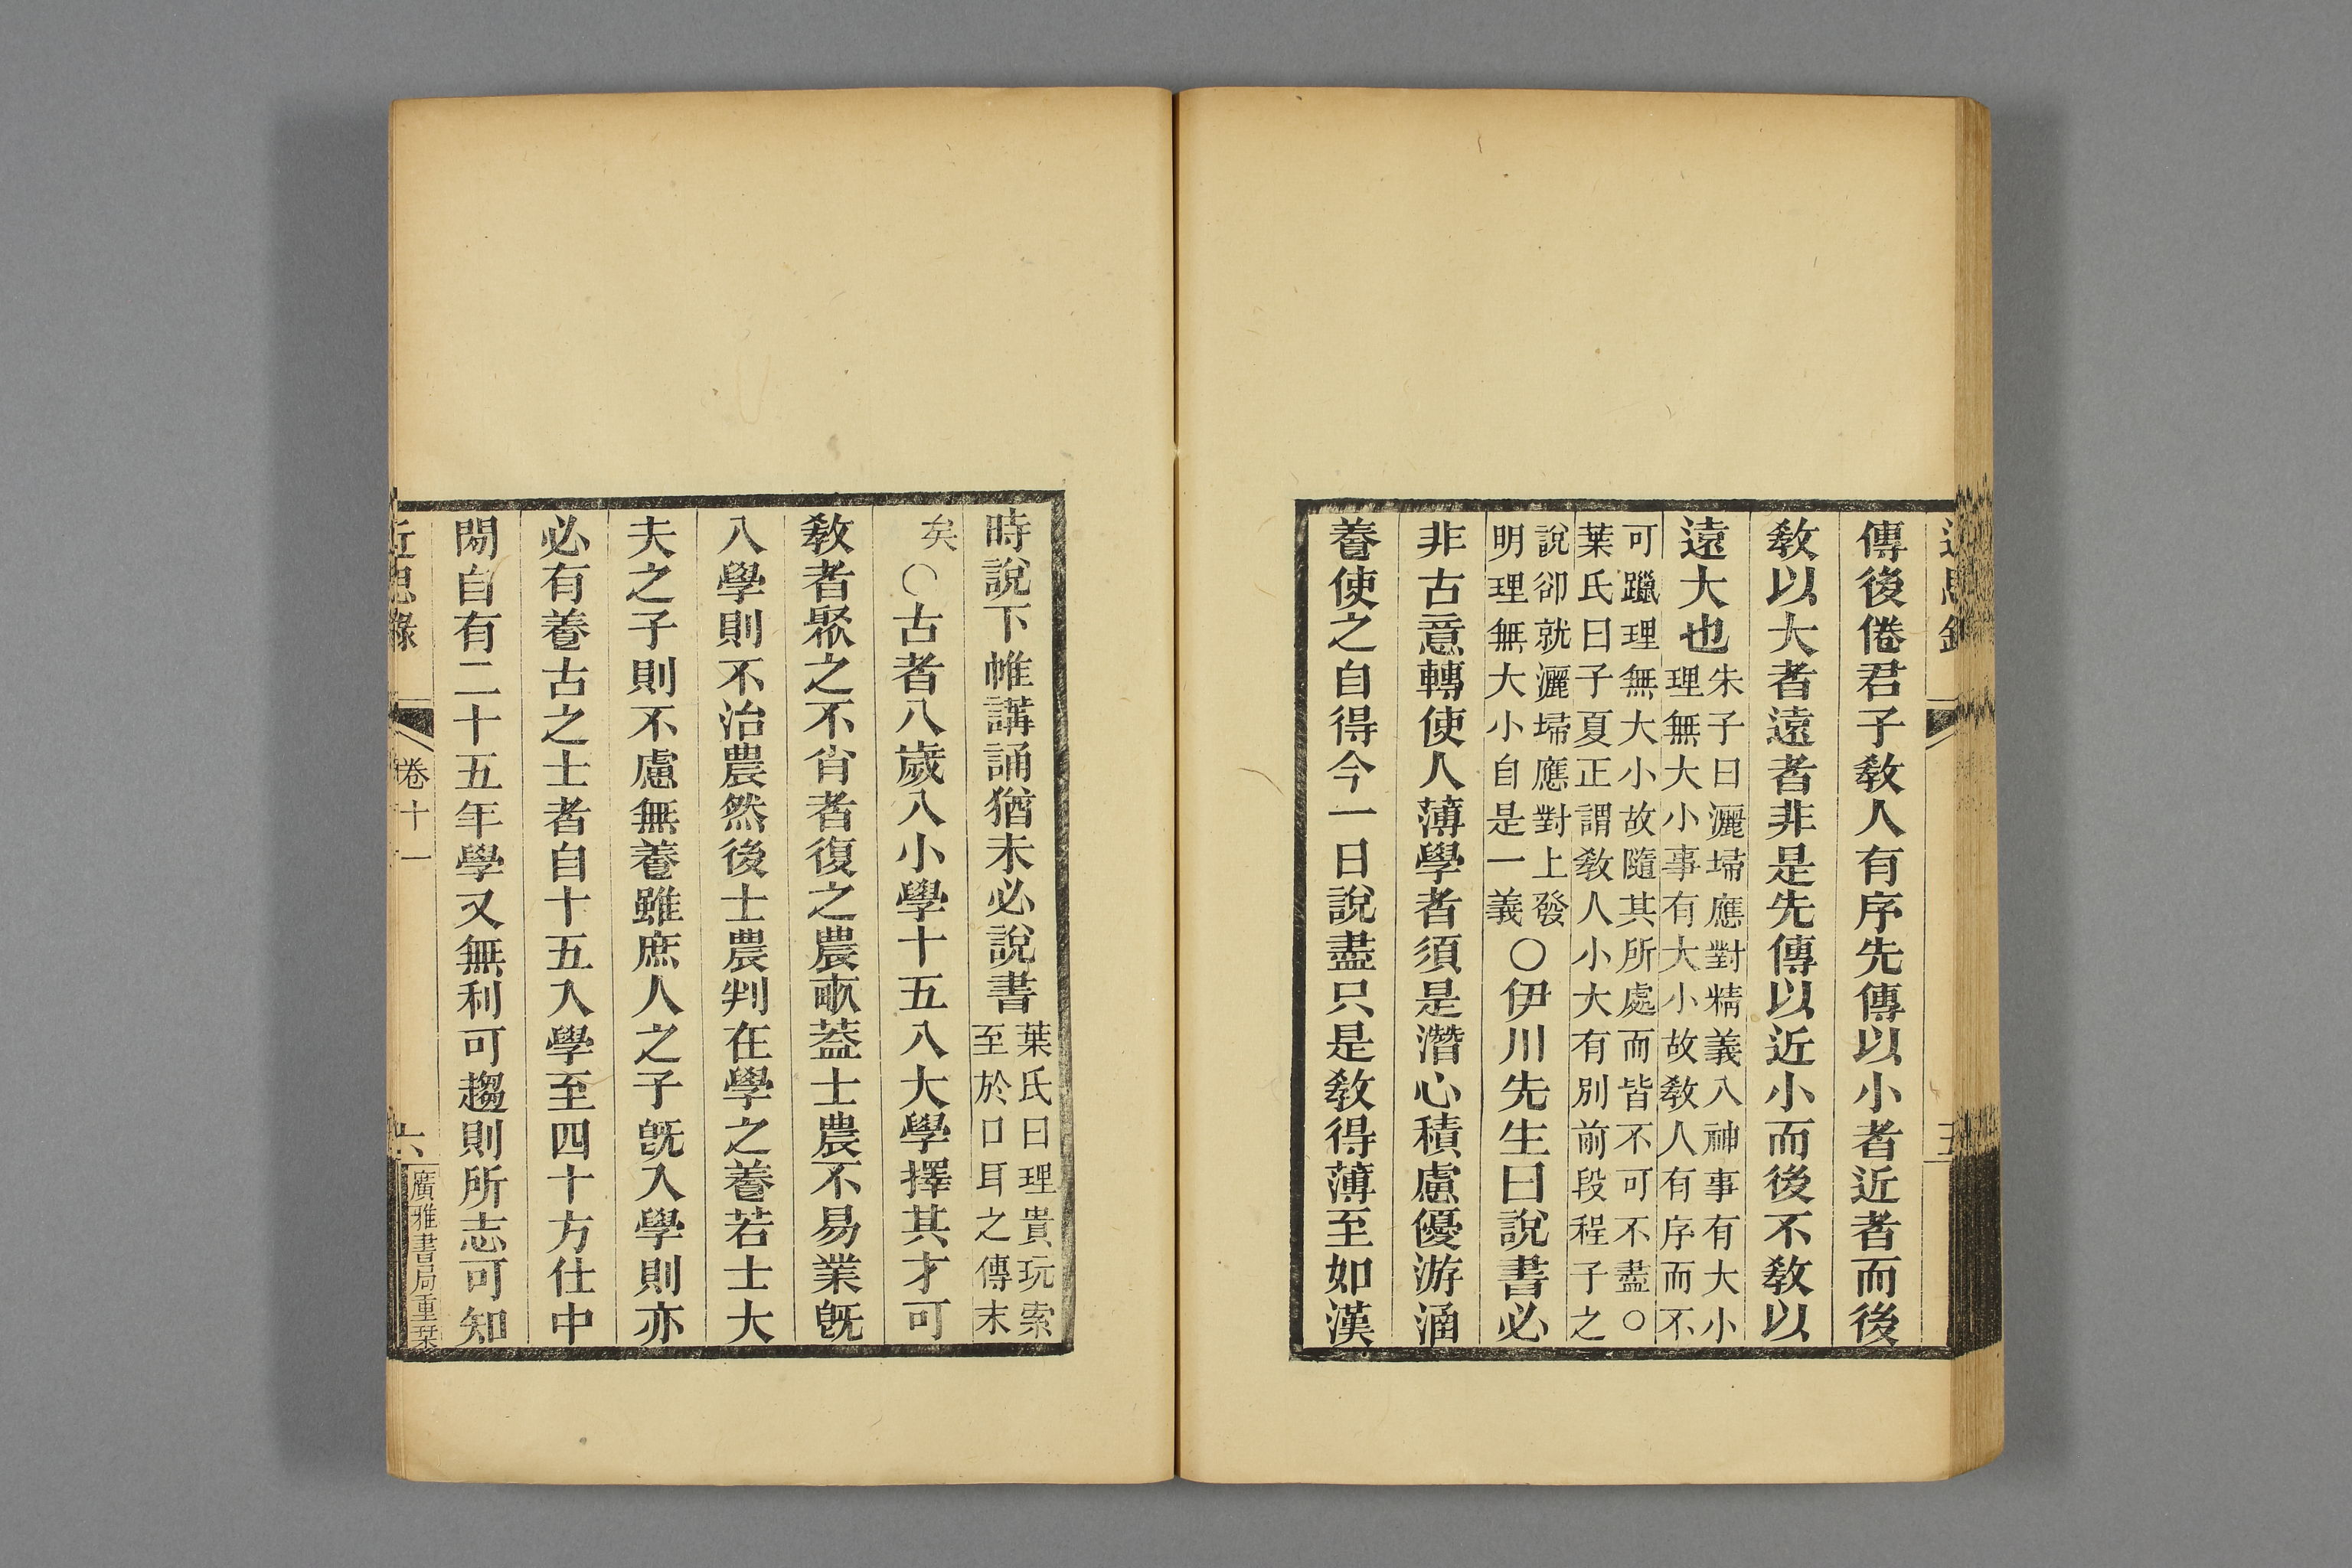 傳後倦君子敎人有序先傳以小者近者而後
敎以大者遠者非是先傳以近小而後不敎以
遠大也
朱子曰灑埽應對精義入神事有大小
理無大小事有大小故敎人有序而不
可躐理無大小故隨其所處而皆不可不盡○
葉氏曰子夏正謂敎人小大有別前段程子之
說卻就灑埽應對上發
明理無大小自是一義
○伊川先生曰說書必
非古意轉使人薄學者須是潛心積慮優游涵
養使之自得今一日說盡只是敎得薄至如漢
時說下帷講誦猶未必說書
葉氏曰理貴玩索
至於口耳之傳末
矣
○古者八歲入小學十五入大學擇其才可
敎者聚之不肖者復之農畝葢士農不易業旣
入學則不治農然後士農判在學之養若士大
夫之子則不慮無養雖庶人之子旣入學則亦
必有養古之士者自十五入學至四十方仕中
閒自有二十五年學又無利可趨則所志可知
近思錄
卷十一
六
廣雅書局重栞